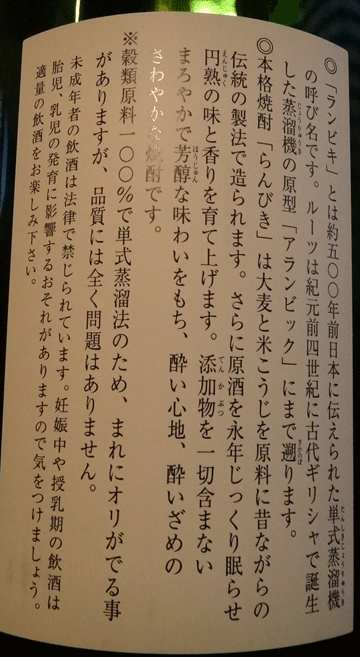 ◎「ランビキ」とは約五〇〇年前日本に伝えられた単式蒸溜機
の呼び名です。ルーツは紀元前四世紀に古代ギリシャで誕生
した蒸溜機の原型「アランビック」にまで遡ります。
◎本格焼酎「らんびき」は大麦と米こうじを原料に昔ながらの
伝統の製法で造られます。さらに原酒を永年じっくり眠らせ
円熟の味と香りを育て上げます。添加物を一切含まない
まろやかで芳醇な味わいをもち、酔い心地、酔いざめの
さわやかな焼酎です。
※穀類原料一〇〇%で単式蒸溜法のため、まれにオリがでる事
がありますが、品質には全く問題はありません。
未成年者の飲酒は法律で禁じられています。妊娠中や授乳期の飲酒は
胎児、乳児の発育に影響するおそれがありますので気をつけましょう。
適量の飲酒をお楽しみ下さい。